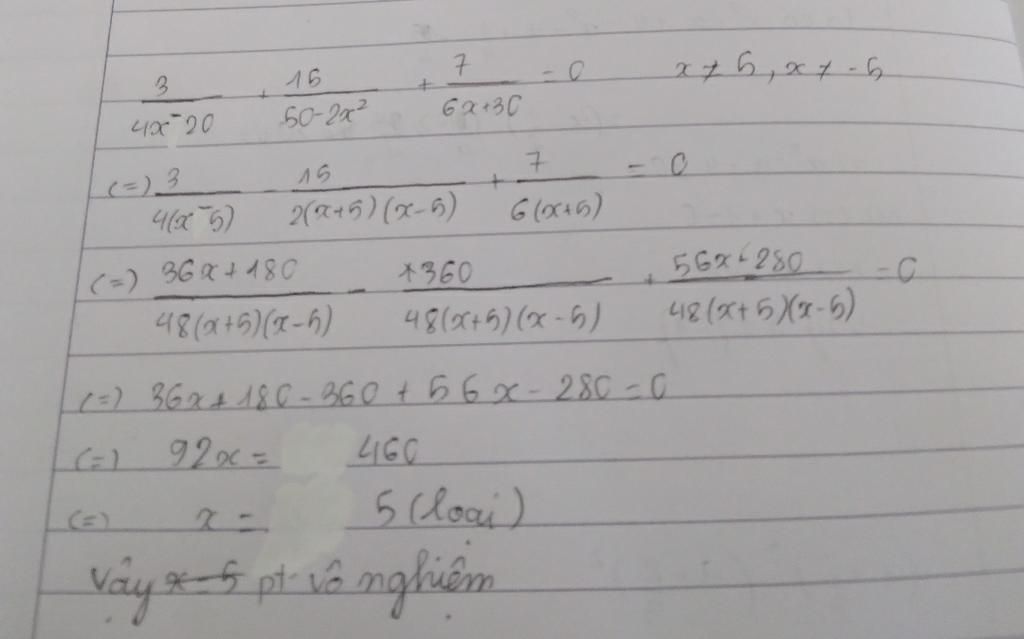 3/(4x-20) + 15/(50-2x²) + 7/(6x+30) = 0 x ≠ 5, x ≠ -5
(=) 3/(4(x-5)) - 15/(2(x+5)(x-5)) + 7/(6(x+5)) = 0
(=) (36x+180)/(48(x+5)(x-5)) - 360/(48(x+5)(x-5)) + (56x-280)/(48(x+5)(x-5)) = 0
(=) 36x+180-360+56x-280=0
(=) 92x = 460
(=) x = 5 (loại)
Vậy x=5 pt vô nghiệm